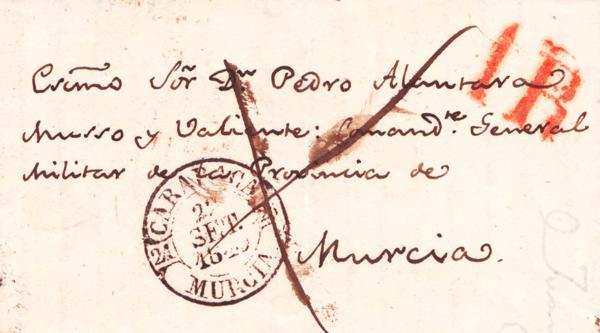 Exc̃mo Sõr Dn Pedro Alcantara
Musso y Valiente: Comandte General
Militar de la Provincia de
Murcia.
1R
CARAVACA
2
SET.
MURCIA